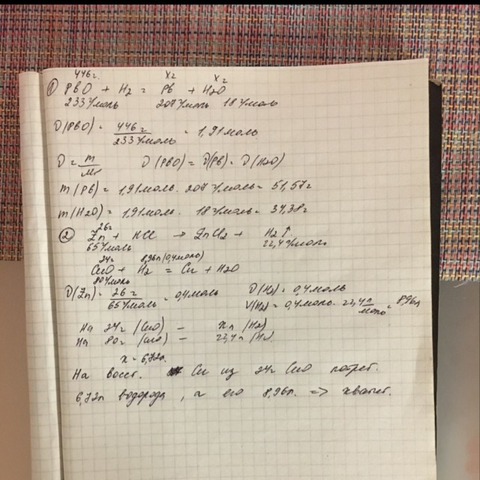 446г. xг xг
① PbO + H₂ = Pb + H₂O
233г/моль 207г/моль 18г/моль
ν(PbO) = 446г / 233г/моль = 1,91моль
ν = m / Mr ν(PbO) = ν(Pb) = ν(H₂O)
m(Pb) = 1,91моль · 207г/моль = 51,57г
m(H₂O) = 1,91моль · 18г/моль = 34,38г
26г
② Zn + HCl → ZnCl₂ + H₂↑
65г/моль 22,4л/моль
24г 8,96л (0,4моль)
CuO + H₂ = Cu + H₂O
80г/моль
ν(Zn) = 26г / 65г/моль = 0,4моль ν(H₂) = 0,4моль
V(H₂) = 0,4моль · 22,4л/моль = 8,96л
На 24г (CuO) – xл (H₂)
На 80г (CuO) – 22,4л (H₂)
x = 6,72л.
На восст. Cu из 24г CuO потреб.
6,72л водорода, а его 8,96л. => хватит.